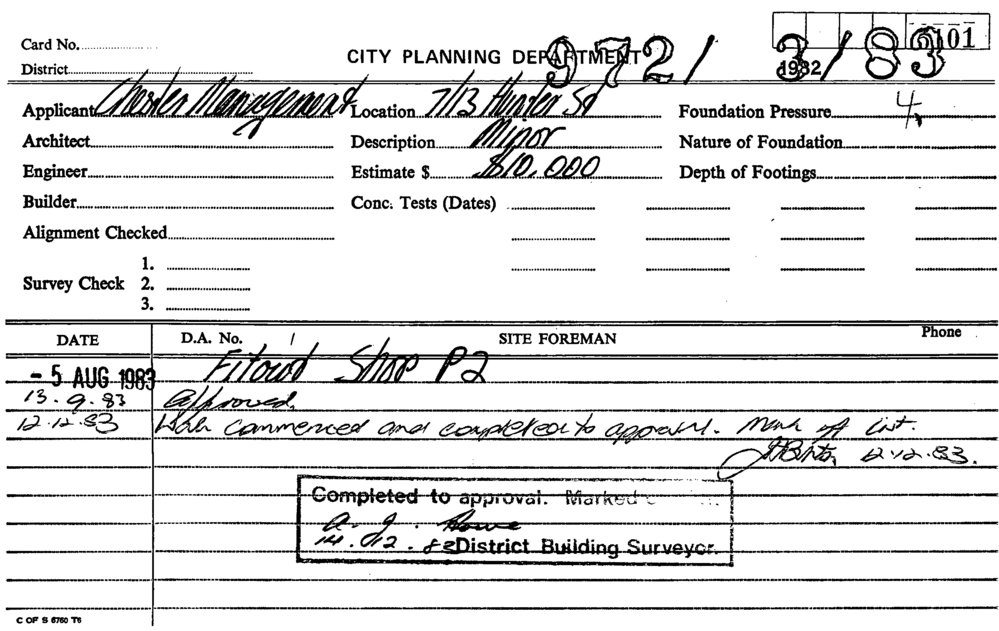 Card No.
District
CITY PLANNING DEPARTMENT
972/ 3/83
101
1982/
Applicant Chester Management Location 7/13 Hunter St Foundation Pressure 4
Architect Description Minor Nature of Foundation
Engineer Estimate $ $10,000 Depth of Footings
Builder Conc. Tests (Dates)
Alignment Checked
1.
Survey Check 2.
3.
DATE D.A. No. SITE FOREMAN Phone
- 5 AUG 1983 Fitout Shop P2
13.9.83 Approved.
12.12.83 Work commenced and completed to approval. Mark off list.
12.12.83.
Completed to approval. Marked
A. J. Howe
14.12.83 District Building Surveyor.
C OF S 6760 T6